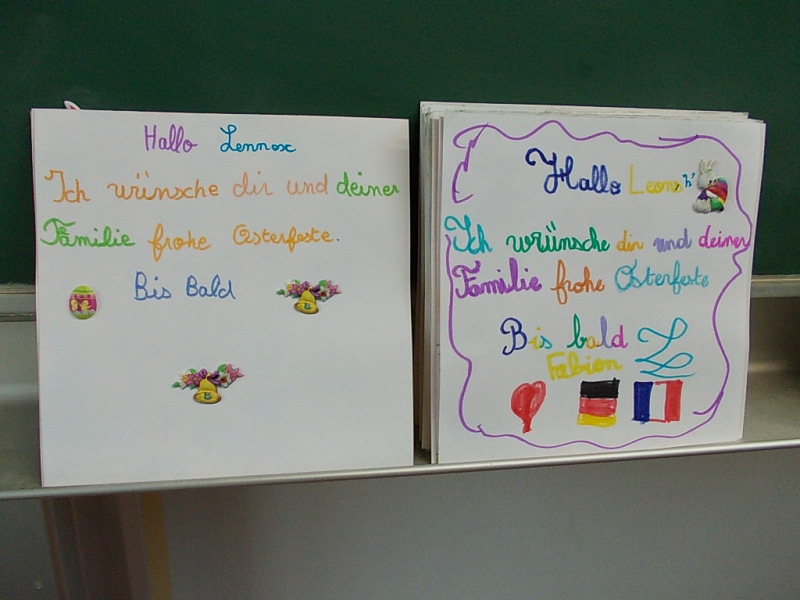 Hallo Lennox
Ich wünsche dir und deiner
Familie frohe Osterfeste.
Bis Bald
Hallo
Ich wünsche dir und deiner
Familie frohe Osterfeste
Bis bald
Fabien